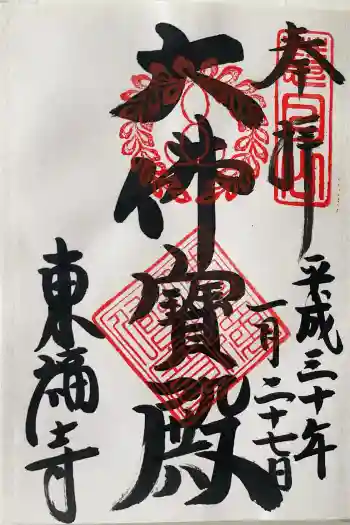 奉拝
平成三十年
一月二十七日
大仏寳殿
東福寺